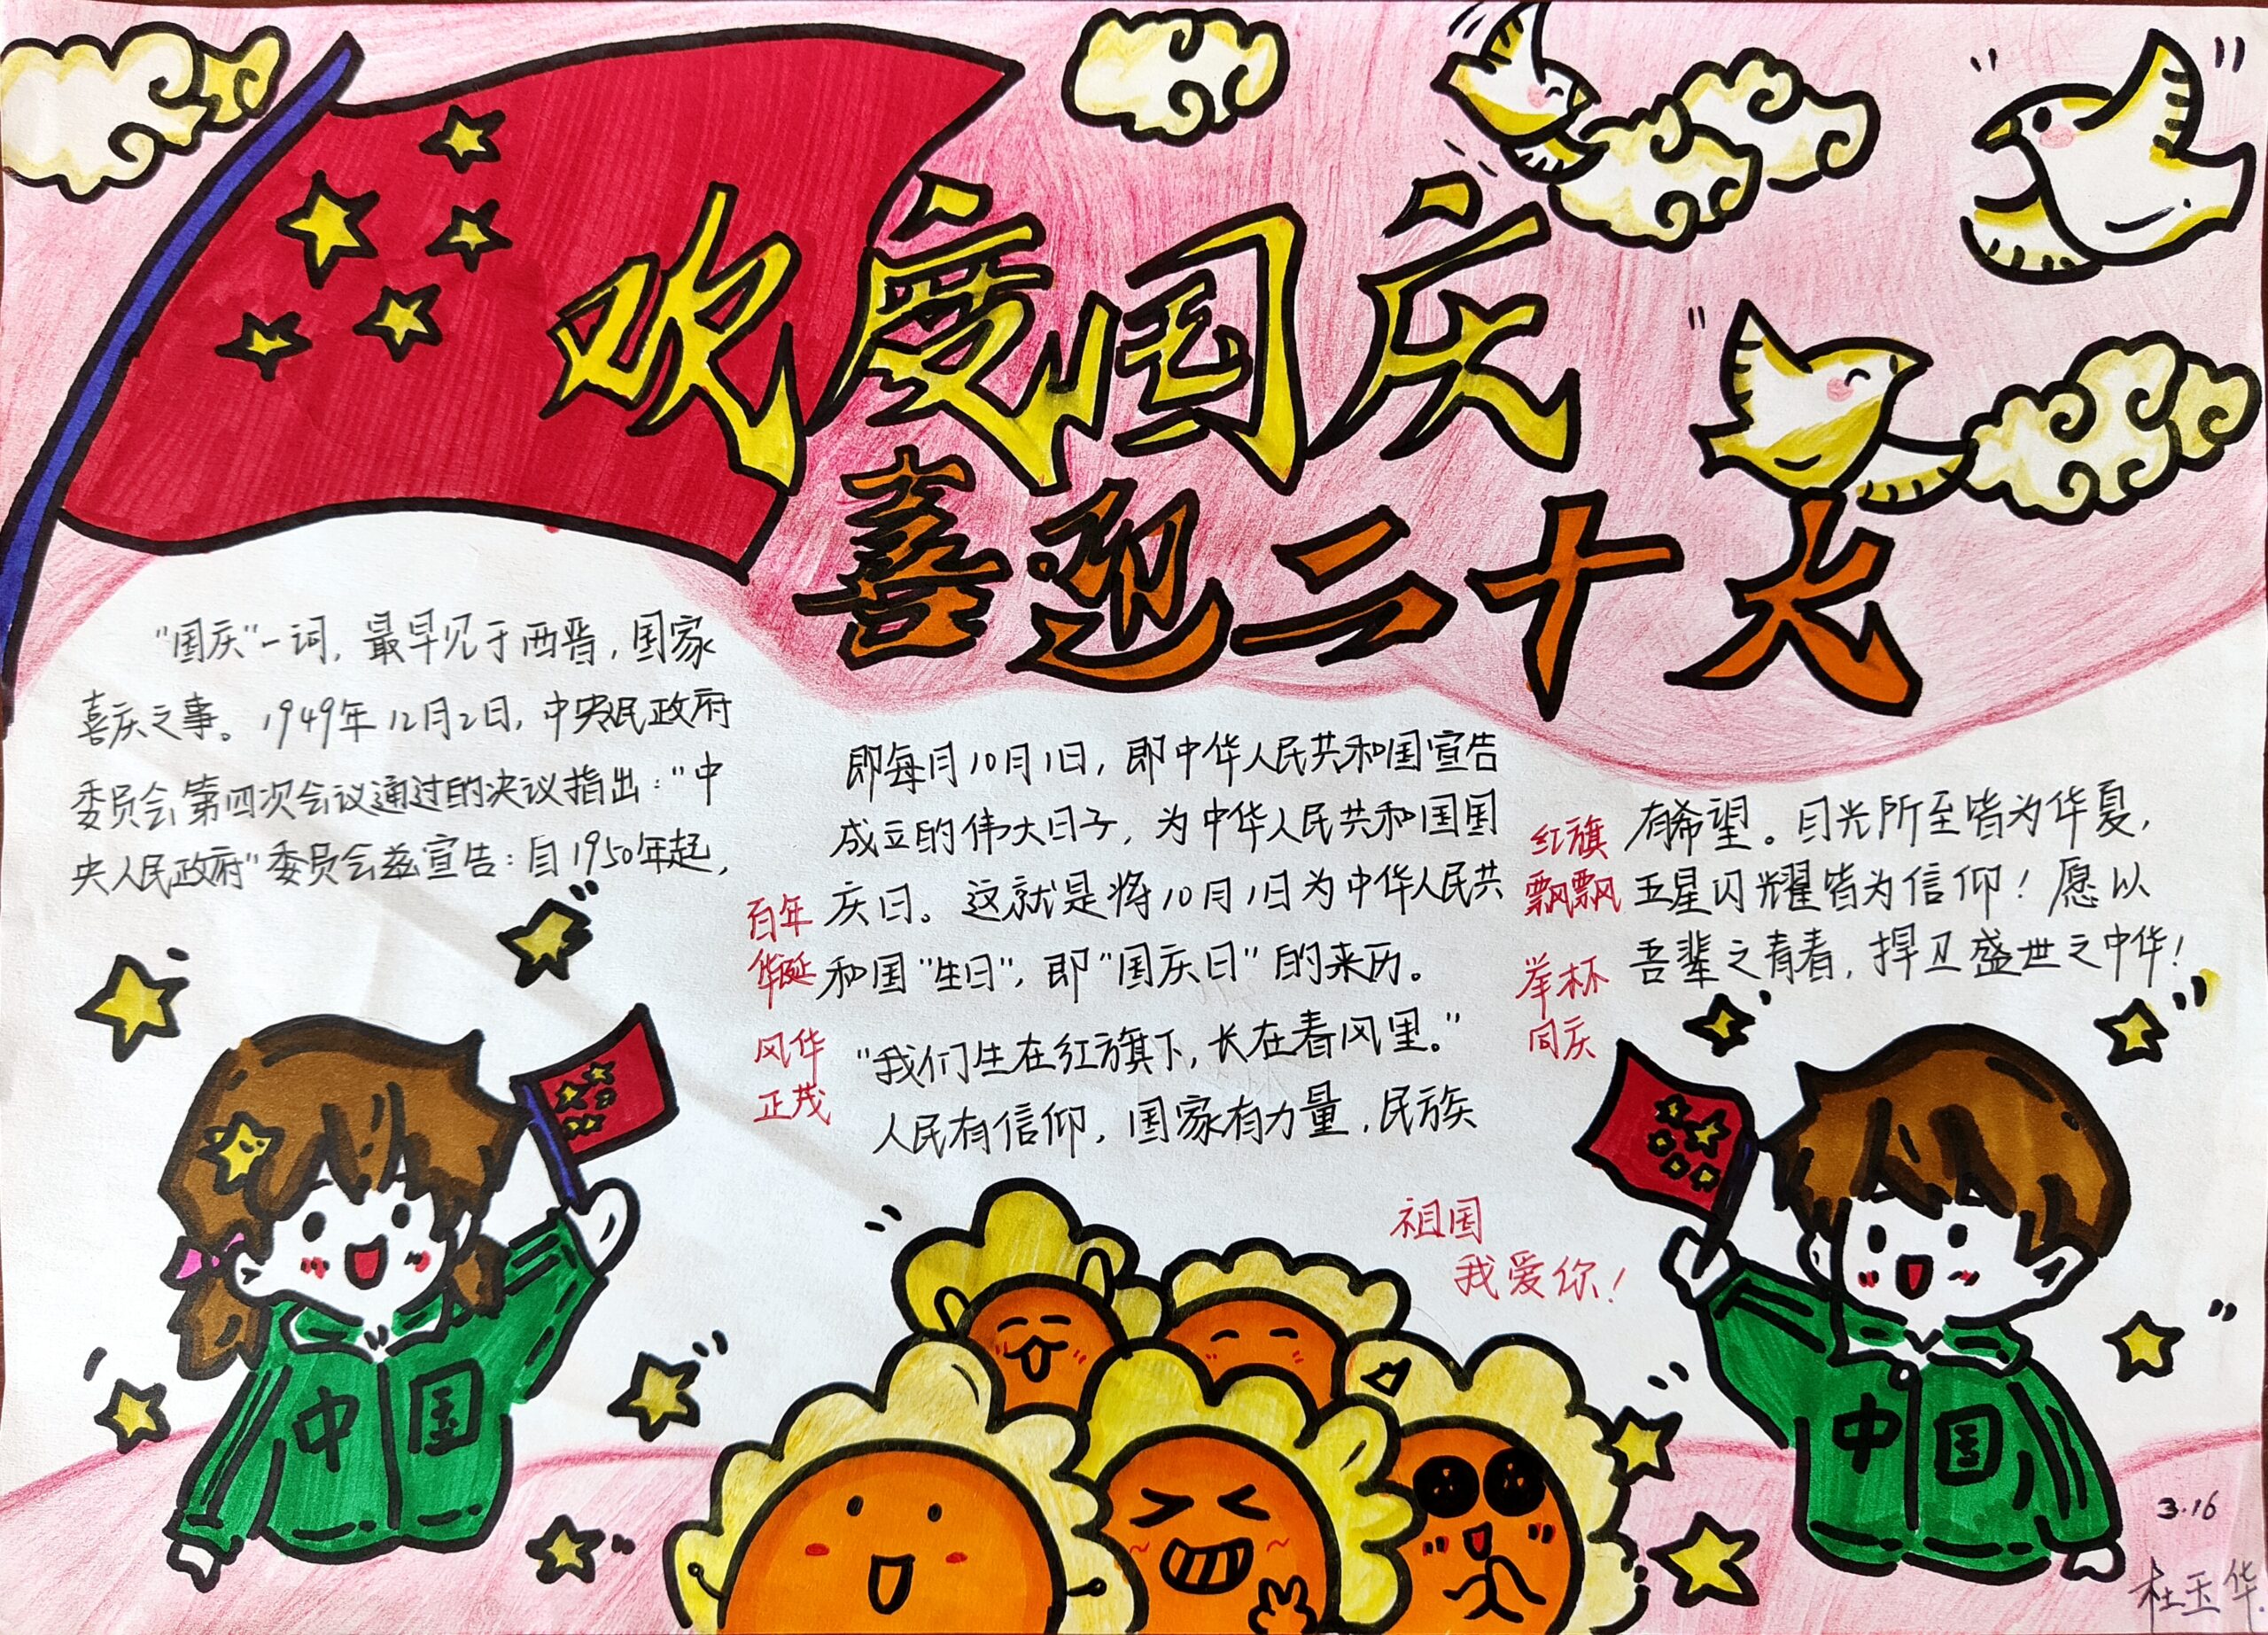 欢度国庆
喜迎二十大
"国庆"一词,最早见于西晋,国家
喜庆之事。1949年12月2日,中央民政府
委员会第四次会议通过的决议指出:"中
央人民政府"委员会兹宣告:自1950年起,
即每月10月1日,即中华人民共和国宣告
成立的伟大日子,为中华人民共和国国
庆日。这就是将10月1日为中华人民共
和国"生日",即"国庆日"的来历。
"我们生在红旗下,长在春风里。"
人民有信仰,国家有力量,民族
有希望。目光所至皆为华夏,
五星闪耀皆为信仰!愿以
吾辈之青春,捍卫盛世之中华!
百年
华诞
风华
正茂
红旗
飘飘
举杯
同庆
祖国
我爱你!
中国
中国
3.16
杜玉华.